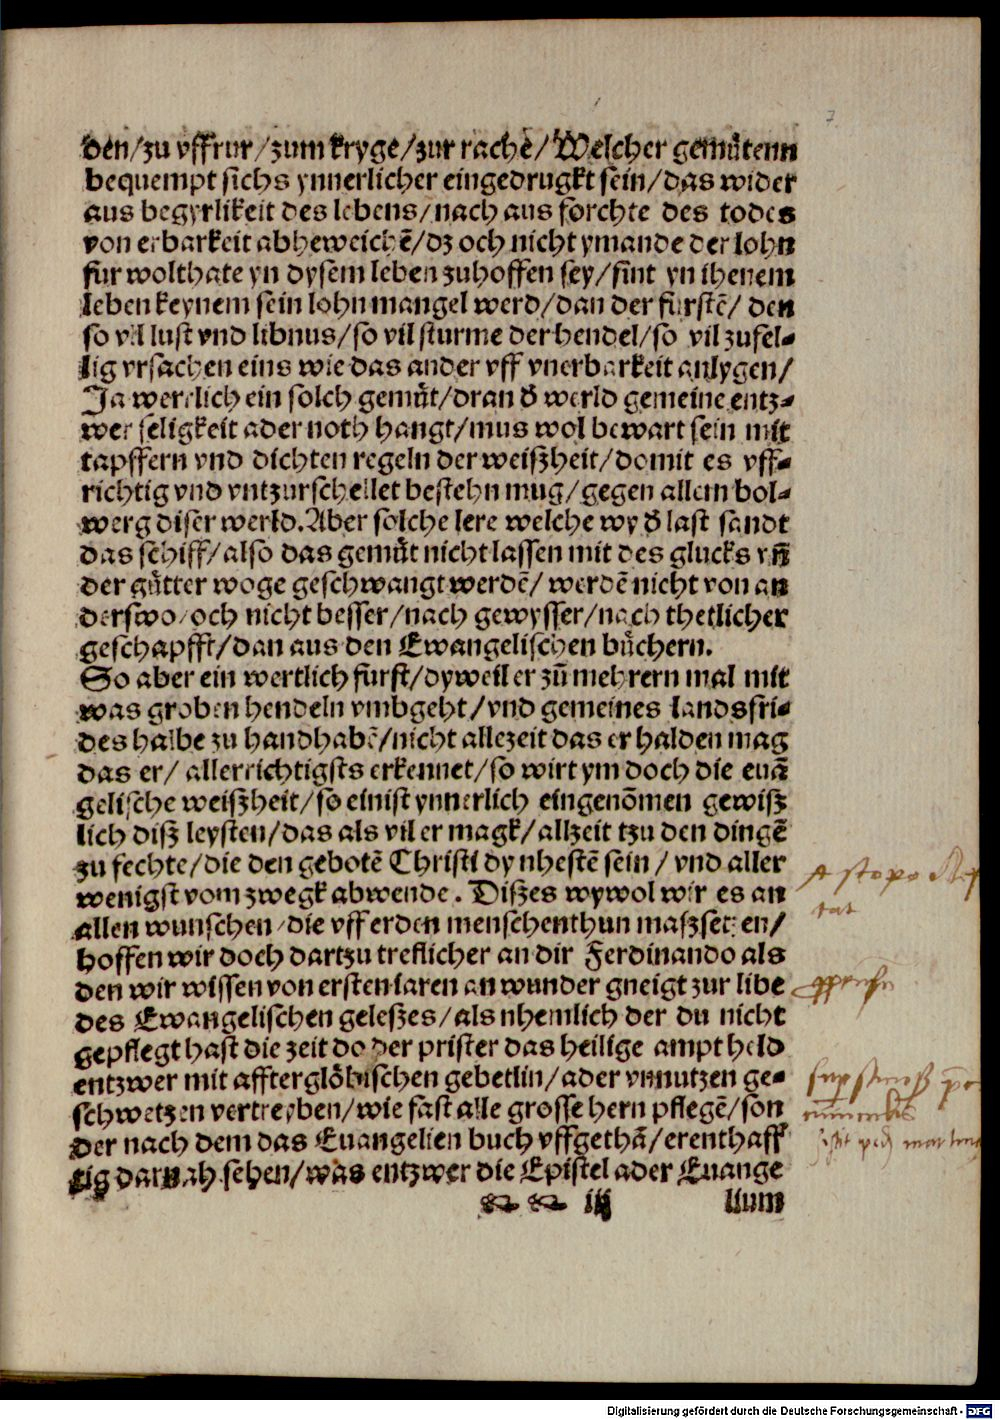 den/zu vffrur/zum kryge/zur rachē/Welcher gemuͤtenn
bequempt sichs ynnerlicher eingedrugkt sein/das wider
aus begyrlikeit des lebens/nach aus forchte des todes
von erbarkeit abheweichē/dz och nicht ymande der lohn
fur wolthate yn dysem leben zuhoffen sey/sint yn ihenem
leben keynem sein lohn mangel werd/dan der furstē/ den
so vil lust vnd libnus/so vil sturme der hendel/so vil zufel-
lig vrsachen eins wie das ander vff vnerbarkeit anlygen/
Ja werlich ein solch gemuͤt/dran d̕ werld gemeine entz-
wer seligkeit ader noth hangt/mus wol bewart sein mit
tapffern vnd dichten regeln der weißheit/domit es vff-
richtig vnd vntzurschellet bestehn mug/gegen allem bol-
werg diser werld.Aber solche lere welche wy d̕ last sandt
das schiff/also das gemuͤt nicht lassen mit des glucks vn̄
der guͤtter woge geschwangt werdē/ werdē nicht von an
derswo/och nicht besser/nach gewysser/nach thetlicher
geschapfft/dan aus den Ewangelischen buͤchern.
So aber ein wertlich furst/dyweil er zū mehrern mal mit
was groben hendeln vmbgeht/vnd gemeines landsfri-
des halbe zu handhabē/nicht allezeit das er halden mag
das er/ allerrichtigsts erkennet/so wirt ym doch die euā
gelische weißheit/so einist ynnerlich eingenōmen gewiß
lich diß leysten/das als vil er magk/allzeit tzu den dingē
zu fechte/die den gebotē Christi dy nhestē sein/ vnd aller
wenigst vom zwegk abwende. Dißes wywol wir es an
allen wunschen/die vff erden menschenthun maßsetzen/
hoffen wir doch dartzu treflicher an dir Ferdinando als
den wir wissen von ersten iaren an wunder gneigt zur libe
des Ewangelischen geleßes/als nhemlich der du nicht
gepflegt hast die zeit do der prister das heilige ampt held
entzwer mit affterglöbischen gebetlin/ader vnnutzen ge-
schwetzen vertreyben/wie fast alle grosse hern pflegē/son
der nach dem das Euangelien buch vffgethā/erenthaff
tig darnah sehen/was entzwer die Epistel ader Euange
iij lium
Digitalisierung gefördert durch die Deutsche Forschungsgemeinschaft - DFG